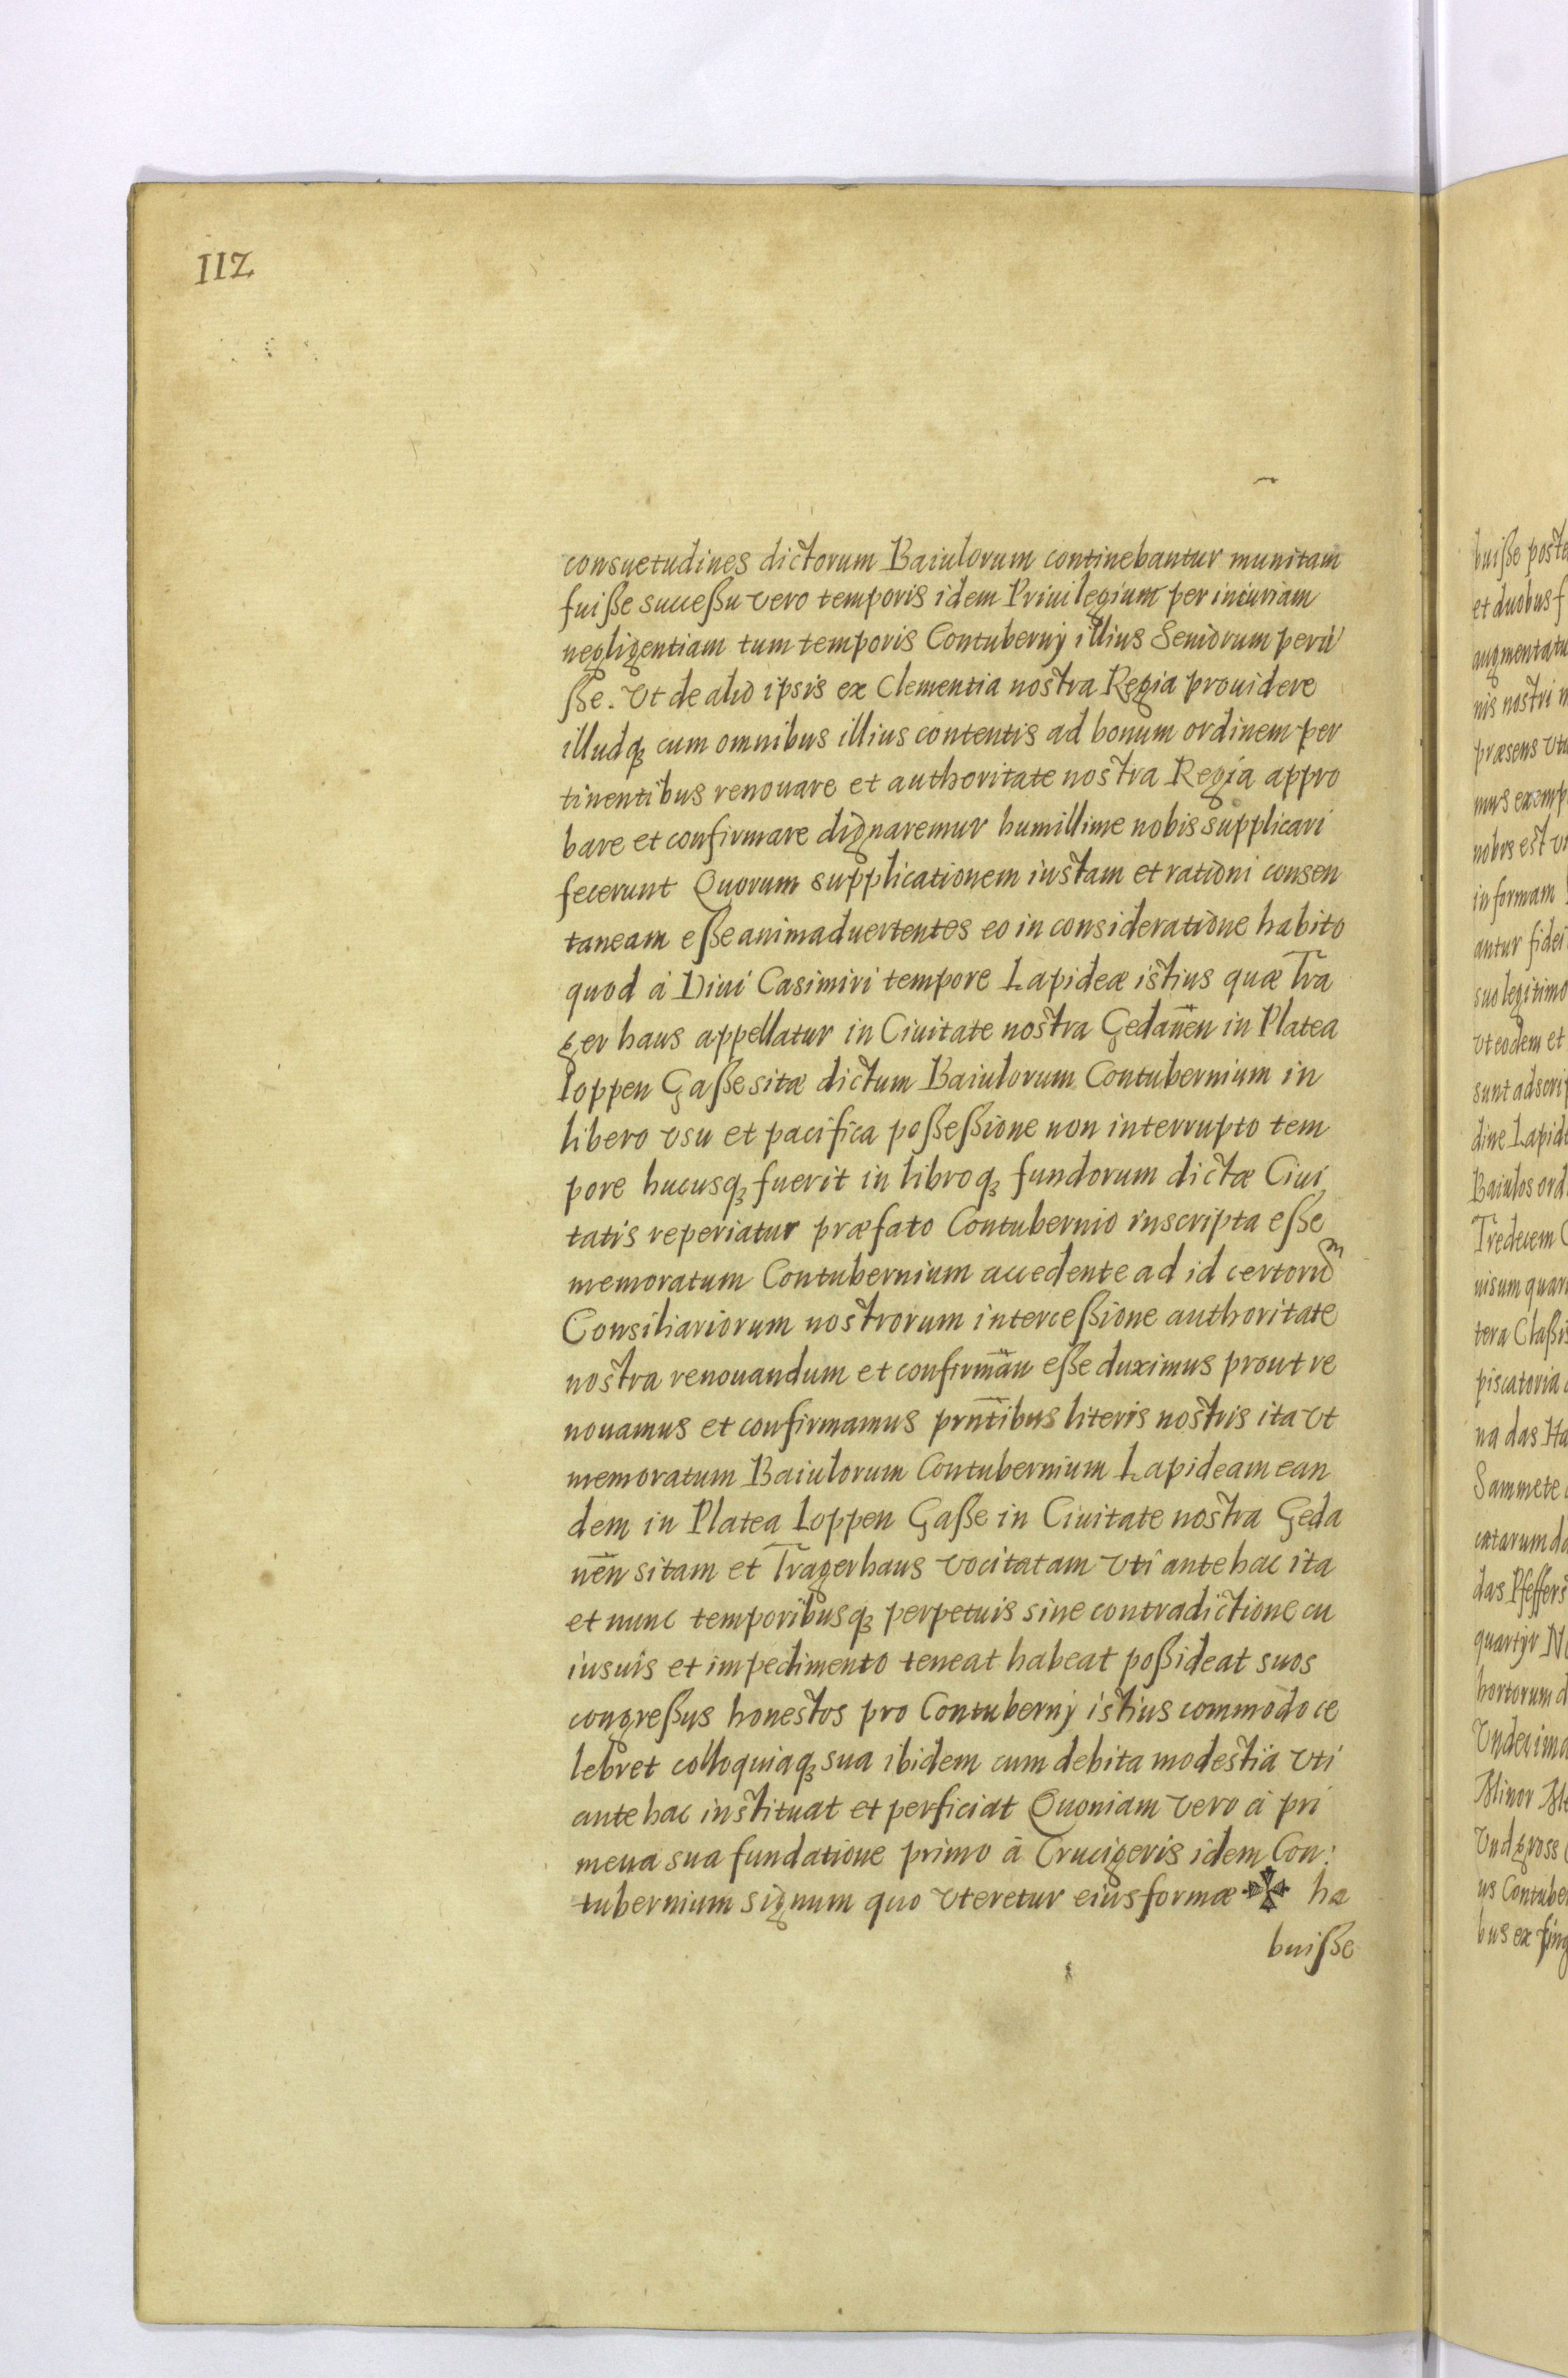 112
consuetudines dictorum Baiulorum continebantur munitam
fuiße succeßu vero temporis idem Priuilegium per incuriam
negligentiam tum temporis Contubernij illius Seniorum perii
ße. Vt de alio ipsis ex Clementia nostra Regia prouidere
illudq₃ cum omnibus illius contentis ad bonum ordinem per
tinentibus renouare et authoritate nostra Regia appro
bare et confirmare dignaremur humillime nobis supplicari
fecerunt Quorum supplicationem iustam et rationi consen
taneam eße animaduertentes eo in consideratione habito
quod á Diui Casimiri tempore Lapideæ istius quæ Tra
ger haus appellatur in Ciuitate nostra Gedan̄en in Platea
Ioppen Gaße sitæ dictum Baiulorum Contubernium in
libero vsu et pacifica poßeßione non interrupto tem
pore hucusq₃ fuerit in libroq₃ fundorum dictæ Ciui
tatis reperiatur præfato Contubernio inscripta eße
memoratum Contubernium accedente ad id certorum
Consiliariorum nostrorum interceßione authoritate
nostra renouandum et confirman̄ eße duximus prout re
nouamus et confirmamus prn̄tibus literis nostris ita vt
memoratum Baiulorum Contubernium Lapideam ean
dem in Platea Ioppen Gaße in Ciuitate nostra Geda
nēn sitam et Tragerhaus vocitatam vti ante hac ita
et nunc temporibusq₃ perpetuis sine contradictione cu
iusuis et impedimento teneat habeat poßideat suos
congreßus honestos pro Contubernij istius commodo ce
lebret colloquiaq₃ sua ibidem cum debita modestia vti
ante hac instituat et perficiat Quoniam vero á pri
meua sua fundatione primo á Crucigeris idem Con:
tubernium signum quo vteretur eius formæ ✠ ha
buiße
buiße poste
et duobus f
augmentatu
nis nostri
præsens vt
mus exemp
nobis est
in formam
antur fidei
suo legitimo
vt eodem et
sunt adscrip
dine Lapid
Baiulos ord
Tredecem
uisum quar
tera Claßis
piscatoria
na das Ha
Sammete
catarum d
das Pfeffer
quartyr
hortorum d
Vndecima
Minor
Vnd gross
us Contube
bus ex sing